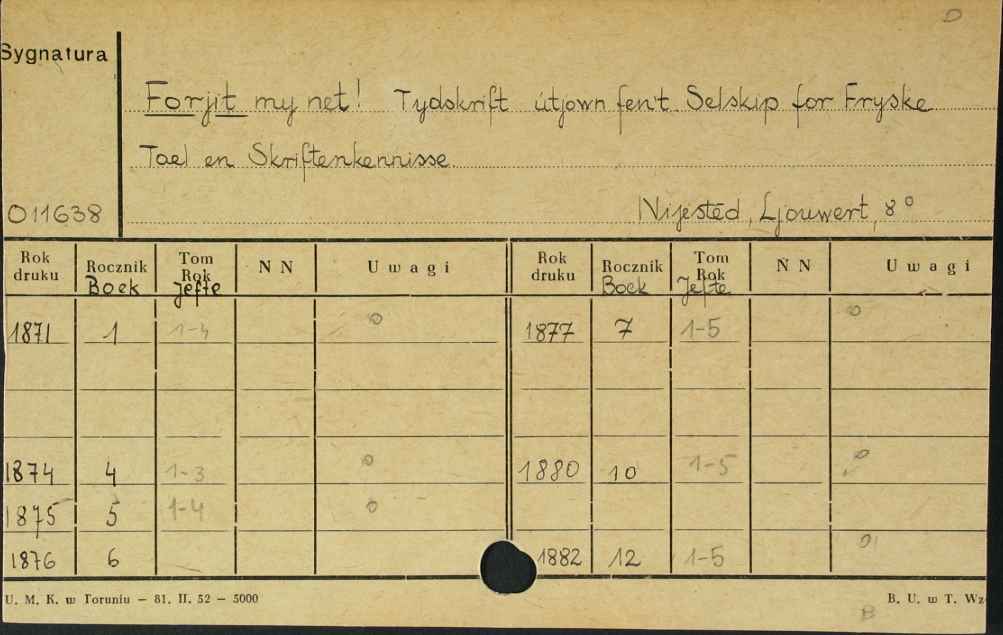 D
Sygnatura
Forjit my net! Tydskrift útjown fen't Selskip for Fryske
Tael en Skriftenkennisse
011638 Nijested, Ljouwert, 8°
Rok druku Rocznik Boek Tom Rok Jefte N N Uwagi Rok druku Rocznik Boek Tom Rok Jefte N N Uwagi
1871 1 1-4 o 1877 7 1-5 o
1874 4 1-3 o 1880 10 1-5 o
1875 5 1-4 o
1876 6 1882 12 1-5 o
U. M. K. w Toruniu – 81. II. 52 – 5000 B. U. w T. Wz
B